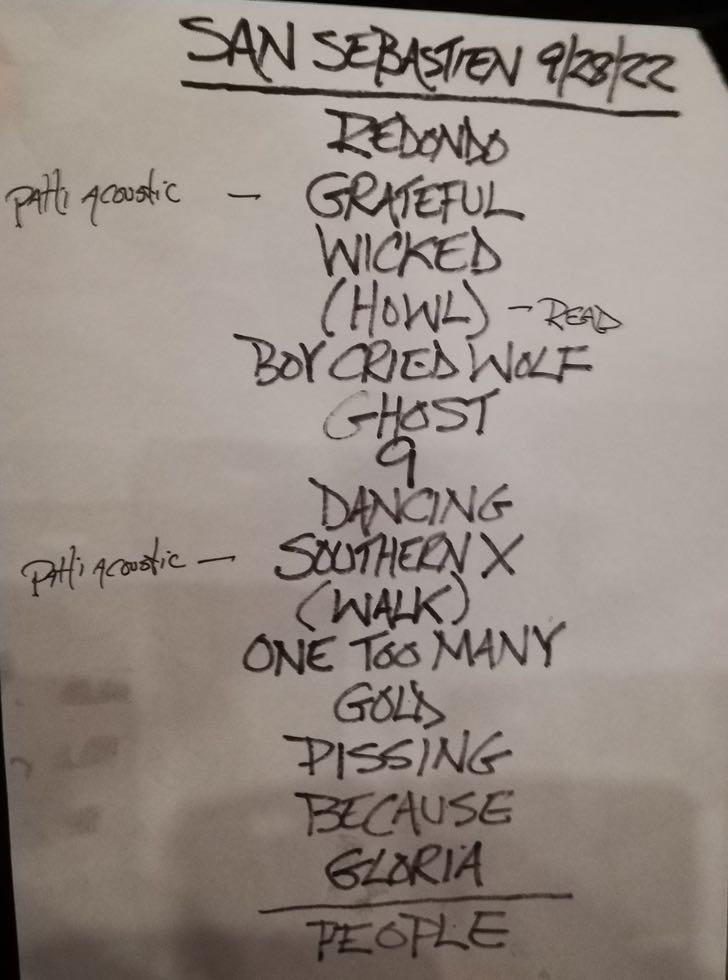 SAN SEBASTIEN 9/28/22
REDONDO
Patti Acoustic — GRATEFUL
WICKED
(HOWL) — READ
BOY CRIED WOLF
GHOST
9
DANCING
Patti Acoustic — SOUTHERN X
(WALK)
ONE TOO MANY
GOLD
PISSING
BECAUSE
GLORIA
PEOPLE